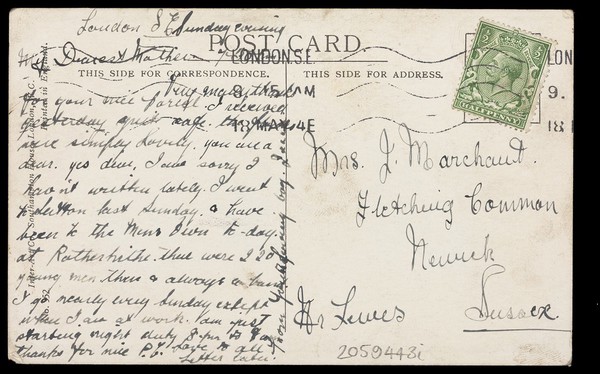 London S E Sunday evening
My Dearest Mother
POST CARD.
THIS SIDE FOR CORRESPONDENCE.
THIS SIDE FOR ADDRESS.
Very many thanks
for your nice Parcel. I received
yesterday quite safe. the
were simply lovely. you are a
dear. yes dear, I am sorry I
havn't written lately. I went
to Sutton last Sunday. & have
been to the Mens Own to-day.
at Rotherhithe. there were 220
young men there & always a band
I go nearly every Sunday except
when I am at work. I am just
starting night duty 8 p.m. to 8 am
thanks for nice P.C. Love to all
Letter later.
from your loving boy.
LONDON.S.E.
9.15 AM
18 MAY 14
LON
9.
18
HALFPENNY
Mrs. J. Marchant.
Fletching Common
Newick
Nr Lewes
Sussex.
2059443i
Southampton House, London, W.C.
Printed in England.